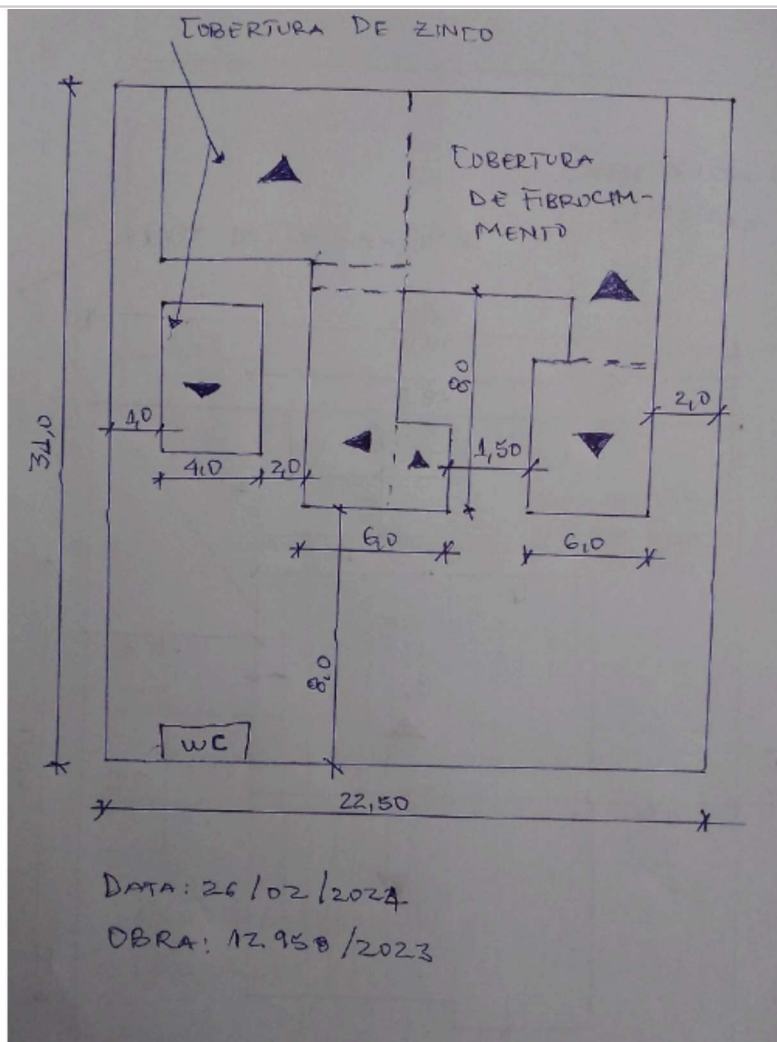 COBERTURA DE ZINCO
COBERTURA
DE FIBROCIM-
MENTO
8,0
2,0
1,0
1,50
4,0
2,0
6,0
6,0
8,0
WC
22,50
DATA: 26/02/2024
OBRA: 12.958/2023